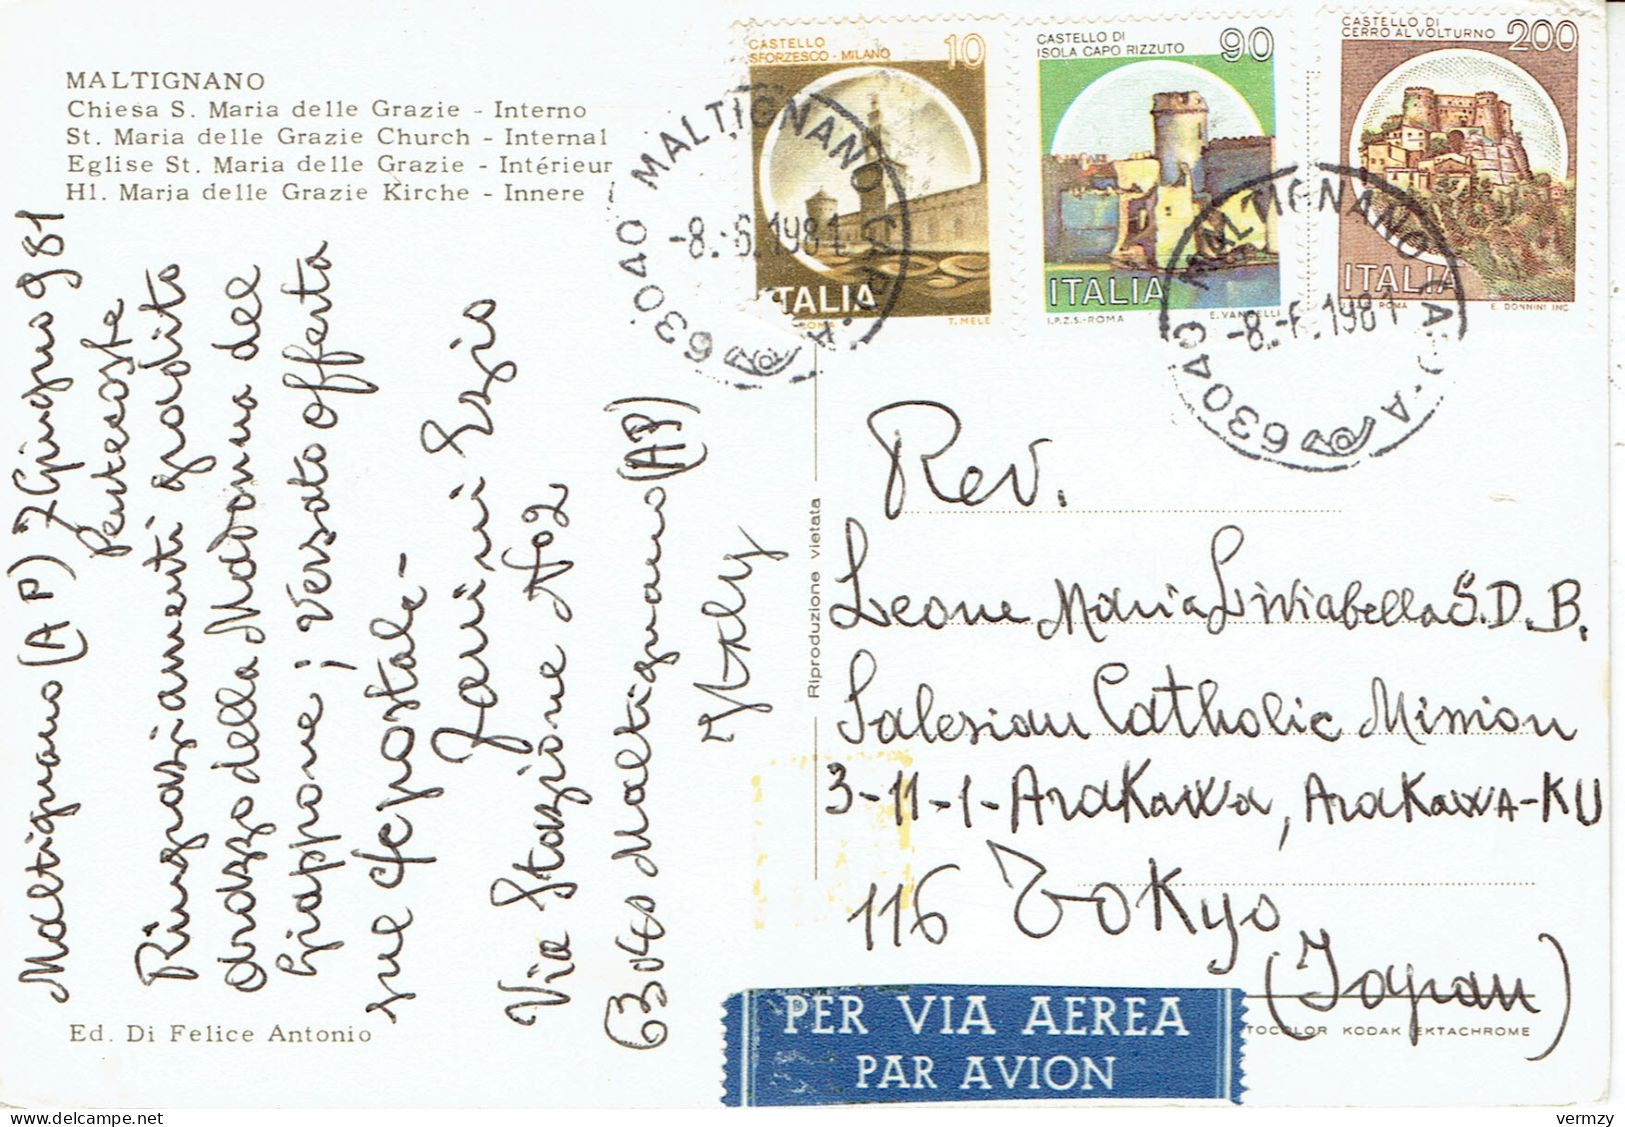 MALTIGNANO
Chiesa S. Maria delle Grazie - Interno
St. Maria delle Grazie Church - Internal
Eglise St. Maria delle Grazie - Intérieur
Hl. Maria delle Grazie Kirche - Innere
CASTELLO
SFORZESCO - MILANO
10
ITALIA
ROMA
T. MELE
CASTELLO DI
ISOLA CAPO RIZZUTO
90
ITALIA
I.P.Z.S.-ROMA
E. VANGELLI
CASTELLO DI
CERRO AL VOLTURNO
200
ITALIA
ROMA
E. DONNINI INC
63040 MALTIGNANO
-8.-6.1981
63040 MALTIGNANO
-8.-6.1981
Maltignano (AP) 7 Giugno 981
Pentecoste
Ringraziamenti gradito
della Madonna del
Giappone; Versato offerta
sue c/c postale -
Ezio
Via Stazione No 2
63040 Maltignano (AP)
Italy
Riproduzione vietata
Rev.
Leone Maria Liviabella S.D.B.
Salesian Catholic Mission
3-11-1-Arakawa, Arakawa-KU
116 Tokyo
(Japan)
Ed. Di Felice Antonio
PER VIA AEREA
PAR AVION
TOCOLOR KODAK EKTACHROME
vermzy